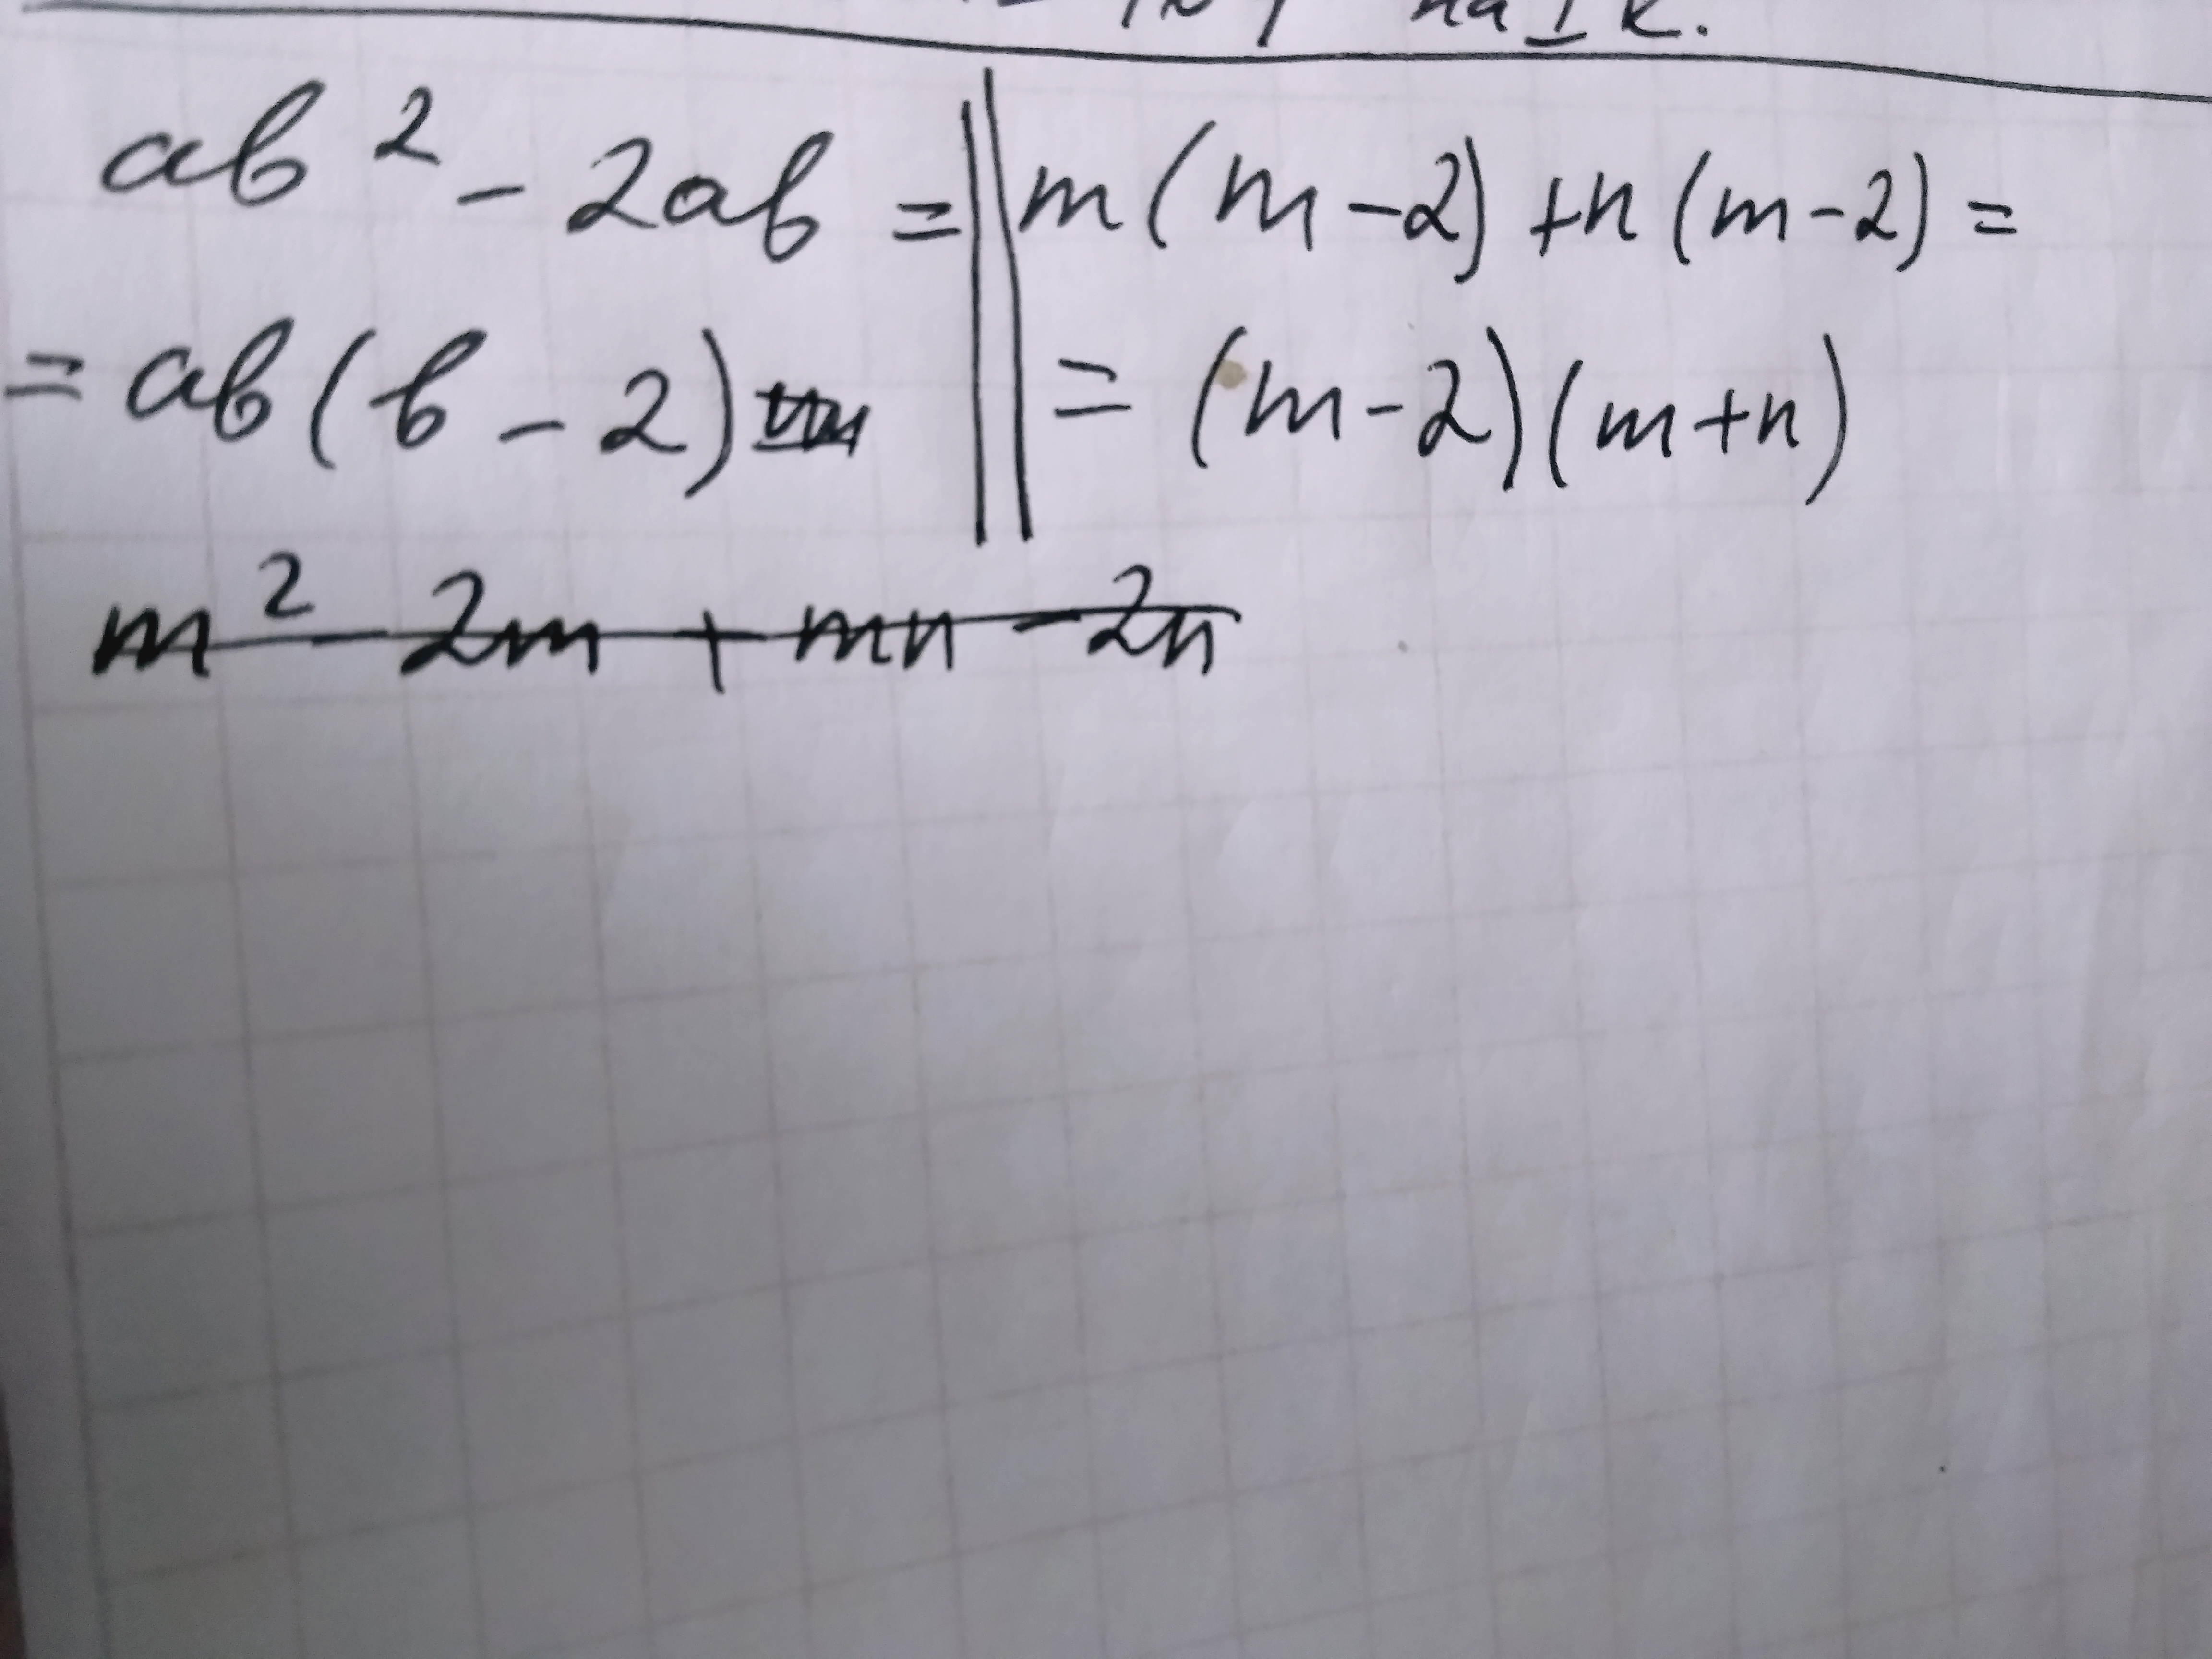 на I к.
ab² - 2ab =
= ab(b - 2)
m(m-2)+n(m-2)=
= (m-2)(m+n)
m² - 2m + mn - 2n